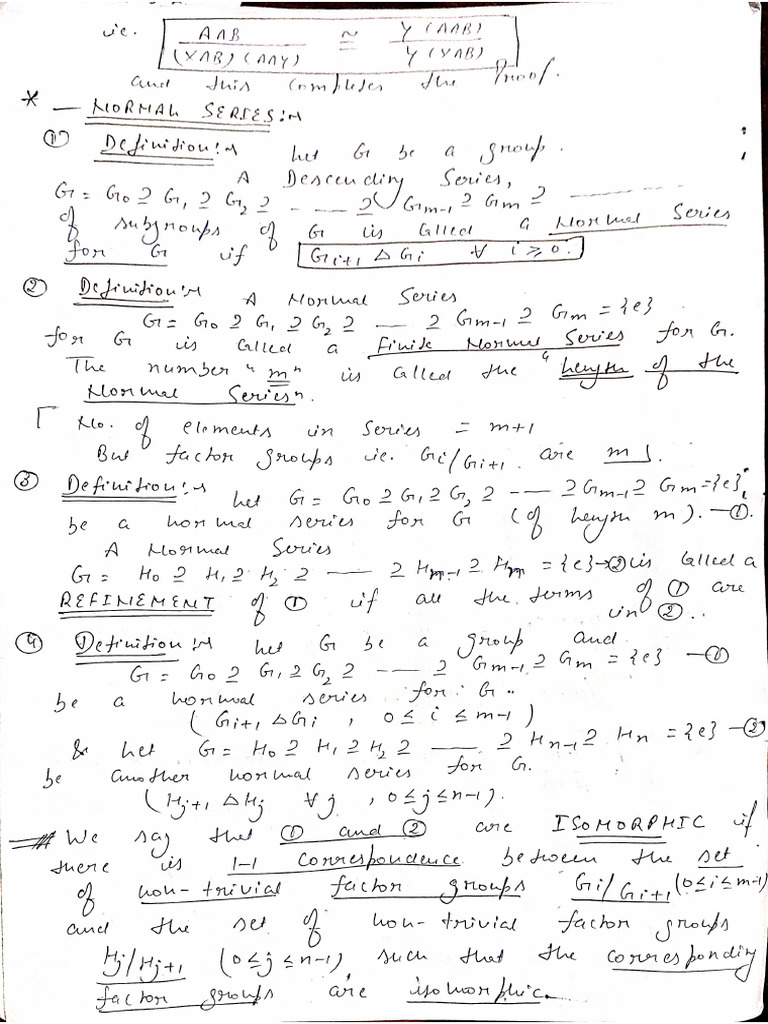 ie. A∩B / (X∩B)(A∩Y) ≅ Y(A∩B) / Y(X∩B)
and this completes the Proof.
* — NORMAL SERIES:~
① Definition:~ Let G be a group.
A Descending Series,
G = G₀ ⊇ G₁ ⊇ G₂ ⊇ - — — ⊇ Gm-1 ⊇ Gm ⊇ ---------
of subgroups of G is called a Normal Series
for G if Gi+1 Δ Gi ∀ i ≥ 0.
② Definition:~ A Normal Series
G = G₀ ⊇ G₁ ⊇ G₂ ⊇ -- — ⊇ Gm-1 ⊇ Gm = {e}
for G is called a Finite Normal Series for G.
The number "m" is called the "length of the
Normal Series".
[ No. of elements in Series = m+1
But factor groups ie. Gi/Gi+1 are m ].
③ Definition:~ Let G = G₀ ⊇ G₁ ⊇ G₂ ⊇ -- — ⊇ Gm-1 ⊇ Gm = {e},
be a normal series for G (of length m). — ①.
A Normal Series
G = H₀ ⊇ H₁ ⊇ H₂ ⊇ -- — ⊇ Hm-1 ⊇ Hm = {e} → ② is called a
REFINEMENT of ① if all the terms of ① are
in ② ..
④ Definition:~ Let G be a group and
G = G₀ ⊇ G₁ ⊇ G₂ ⊇ -- — ⊇ Gm-1 ⊇ Gm = {e} — ①
be a normal series for G..
(Gi+1 Δ Gi , 0 ≤ i ≤ m-1)
& Let G = H₀ ⊇ H₁ ⊇ H₂ ⊇ -- — ⊇ Hn-1 ⊇ Hn = {e} — ②
be another normal series for G.
(Hj+1 Δ Hj ∀ j , 0 ≤ j ≤ n-1).
We say that ① and ② are ISOMORPHIC if
there is 1-1 correspondence between the set
of non-trivial factor groups Gi/Gi+1 (0 ≤ i ≤ m-1)
and the set of non-trivial factor groups
Hj/Hj+1 (0 ≤ j ≤ n-1) such that the corresponding
factor groups are isomorphic.